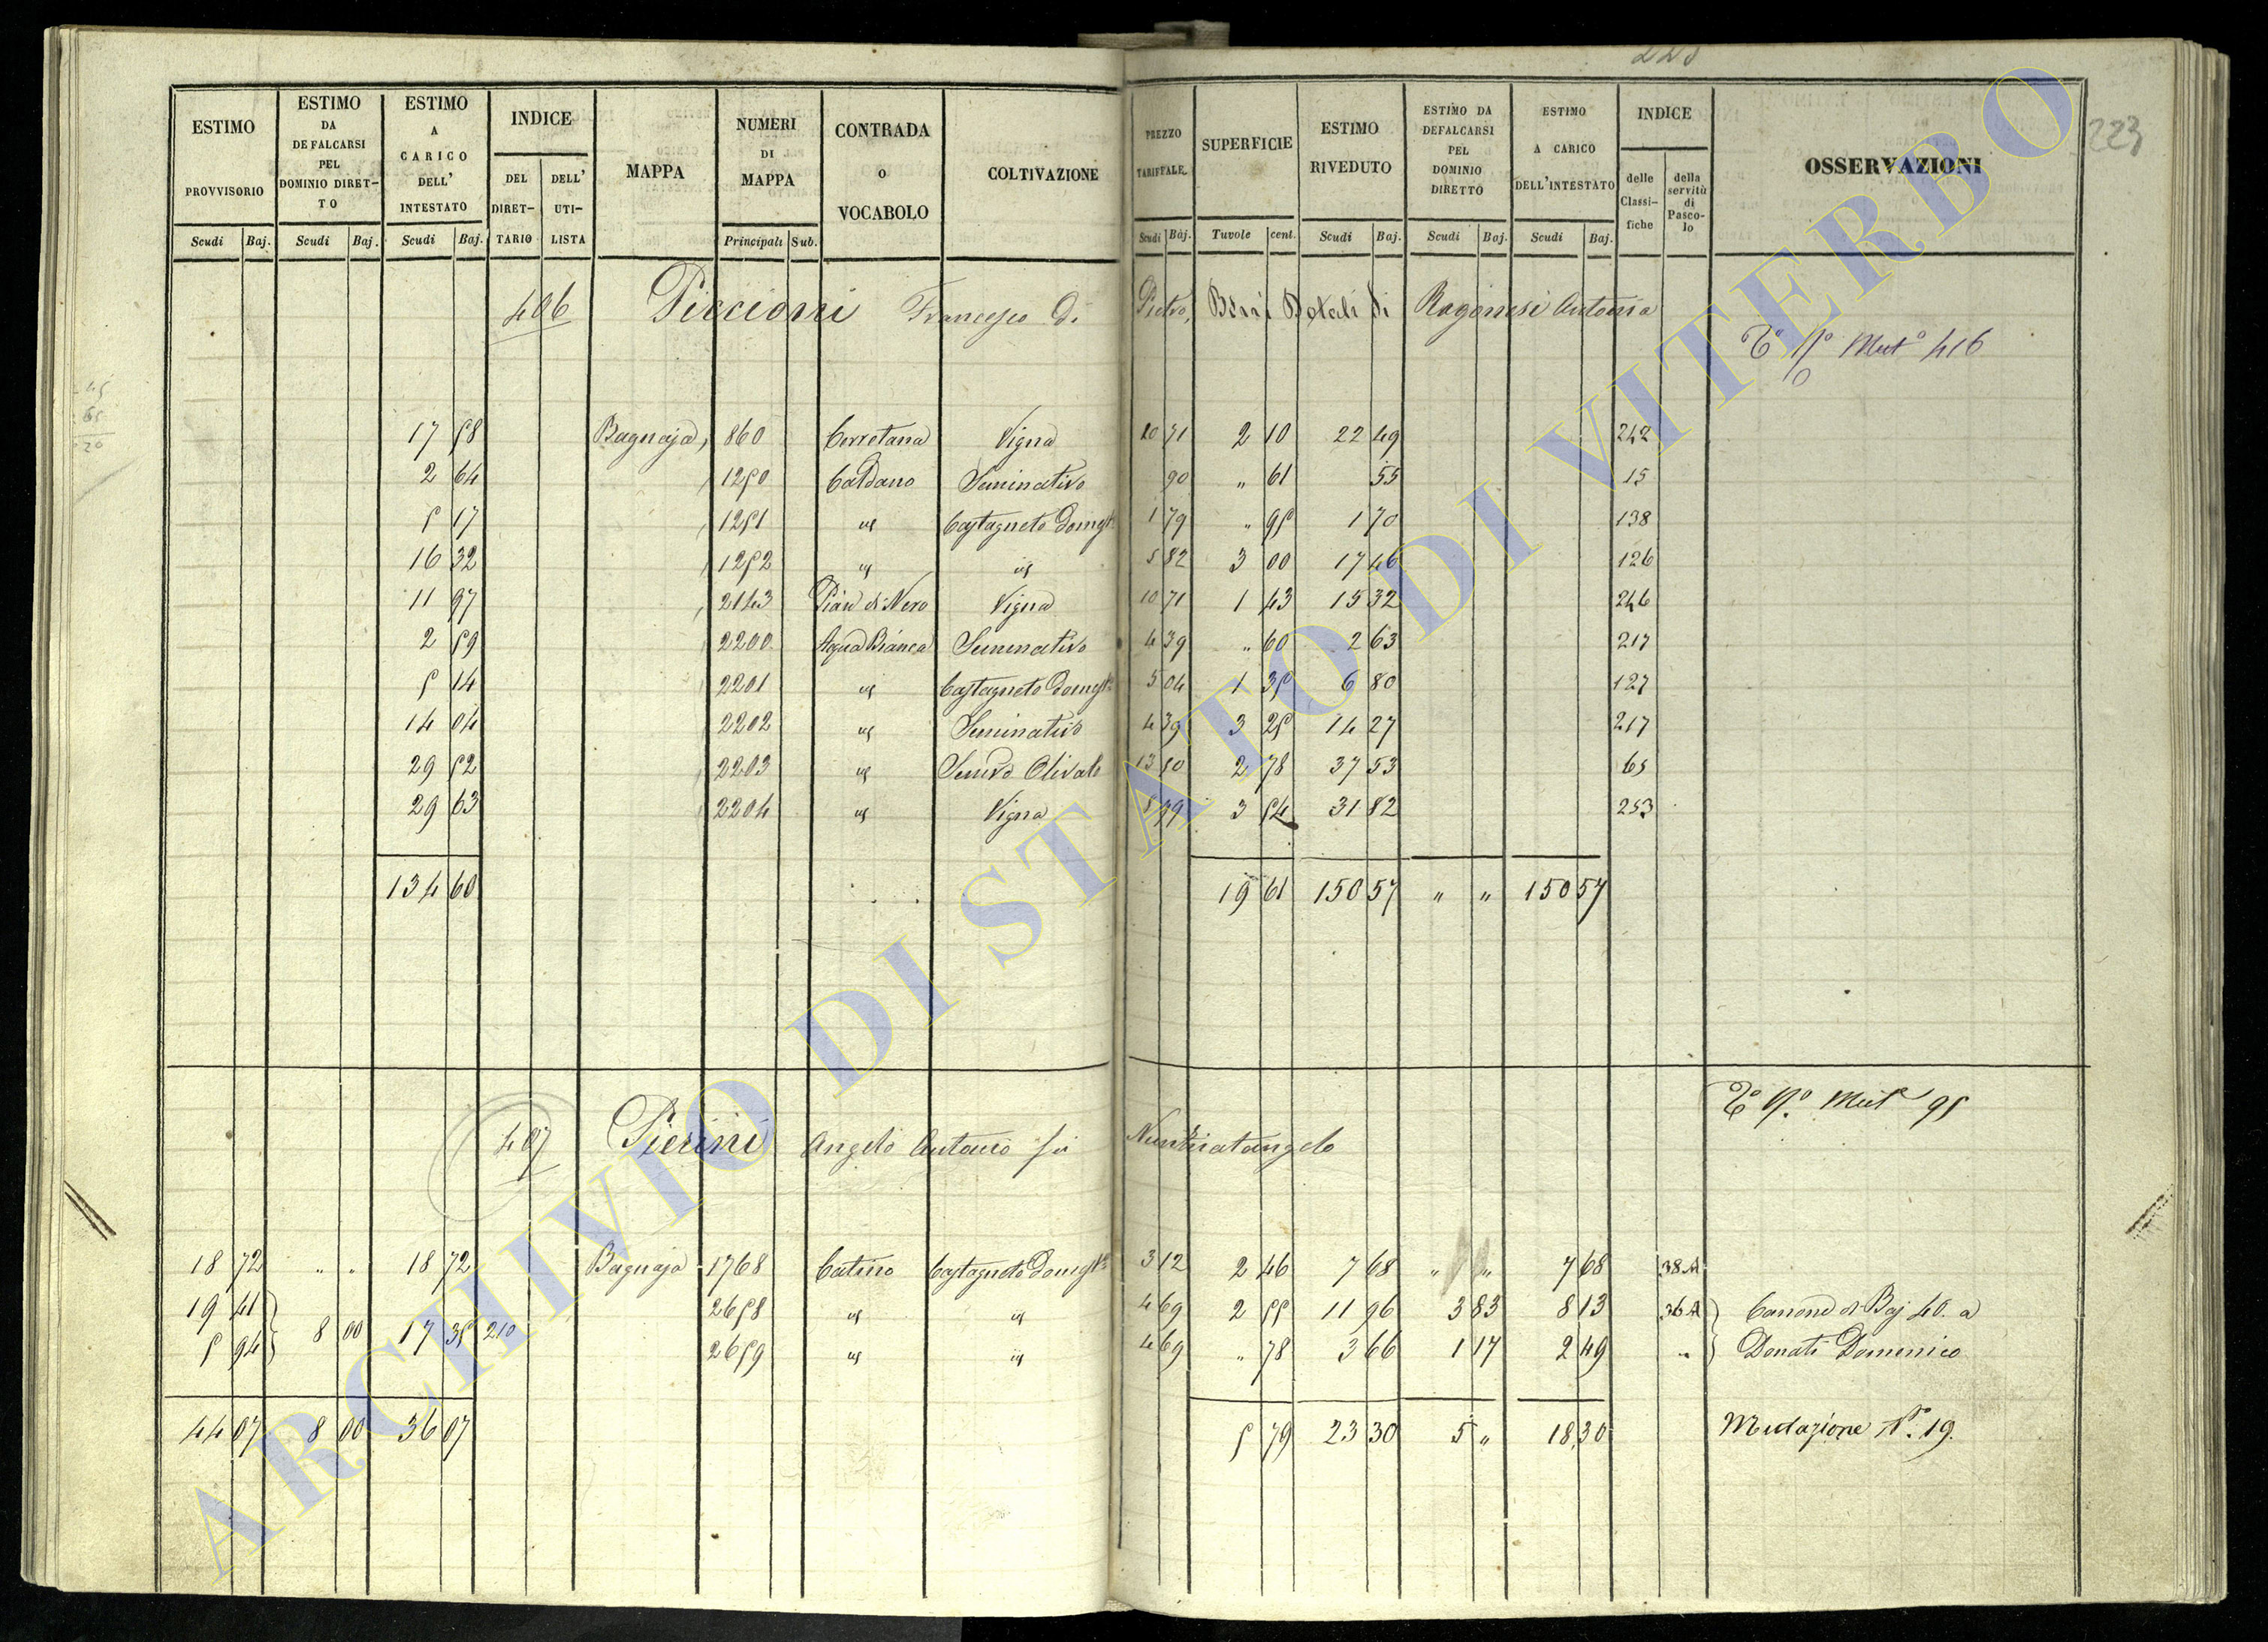 223
ESTIMO PROVVISORIO
ESTIMO DA DEFALCARSI PEL DOMINIO DIRET-TO
ESTIMO A CARICO DELL' INTESTATO
INDICE
DEL DIRET-TARIO
DELL' UTI-LISTA
MAPPA
NUMERI DI MAPPA
CONTRADA O VOCABOLO
COLTIVAZIONE
PREZZO TARIFFALE
SUPERFICIE
ESTIMO RIVEDUTO
ESTIMO DA DEFALCARSI PEL DOMINIO DIRETTO
ESTIMO A CARICO DELL'INTESTATO
INDICE
delle Classi-fiche
della servitù di Pasco-lo
OSSERVAZIONI
Scudi Baj. Scudi Baj. Scudi Baj. Principali Sub. Scudi Baj. Tavole cent. Scudi Baj. Scudi Baj. Scudi Baj.
406 Piccioni Francesco di Pietro, Beni Dotali di Ragonesi Antonia
Mut.º 416
17 58 Bagnaja 860 Cerretana Vigna 10 71 2 10 22 49 242
2 64 1250 Caldano Seminativo 90 " 61 55 15
5 17 1251 id Castagneto Domest. 1 79 " 95 1 70 138
16 32 1252 id id 5 82 3 00 17 46 126
11 97 2143 Pian di Nero Vigna 10 71 1 43 15 32 246
2 59 2200 Aqua Bianca Seminativo 4 39 " 60 2 63 217
5 14 2201 id Castagneto Domest. 5 04 1 35 6 80 127
14 04 2202 id Seminativo 4 39 3 25 14 27 217
29 52 2203 id Semivo Olivato 13 50 2 78 37 53 65
29 63 2204 id Vigna 8 99 3 54 31 82 253
134 60 19 61 150 57 " " 150 57
Mut. 95
407 Pierini Angelo Antonio fu Nunziatangelo
18 72 " " 18 72 Bagnaja 1768 Catino Castagneto Domest. 3 12 2 46 7 68 " " 7 68 38 A
19 41 2658 id id 4 69 2 55 11 96 3 83 8 13 36 A Canone di Baj 40. a
8 00 17 35 210
5 94 2659 id id 4 69 " 78 3 66 1 17 2 49 " Donati Domenico
44 07 8 00 36 07 5 79 23 30 5 " 18 30 Mutazione Nº. 19.
ARCHIVIO DI STATO DI VITERBO